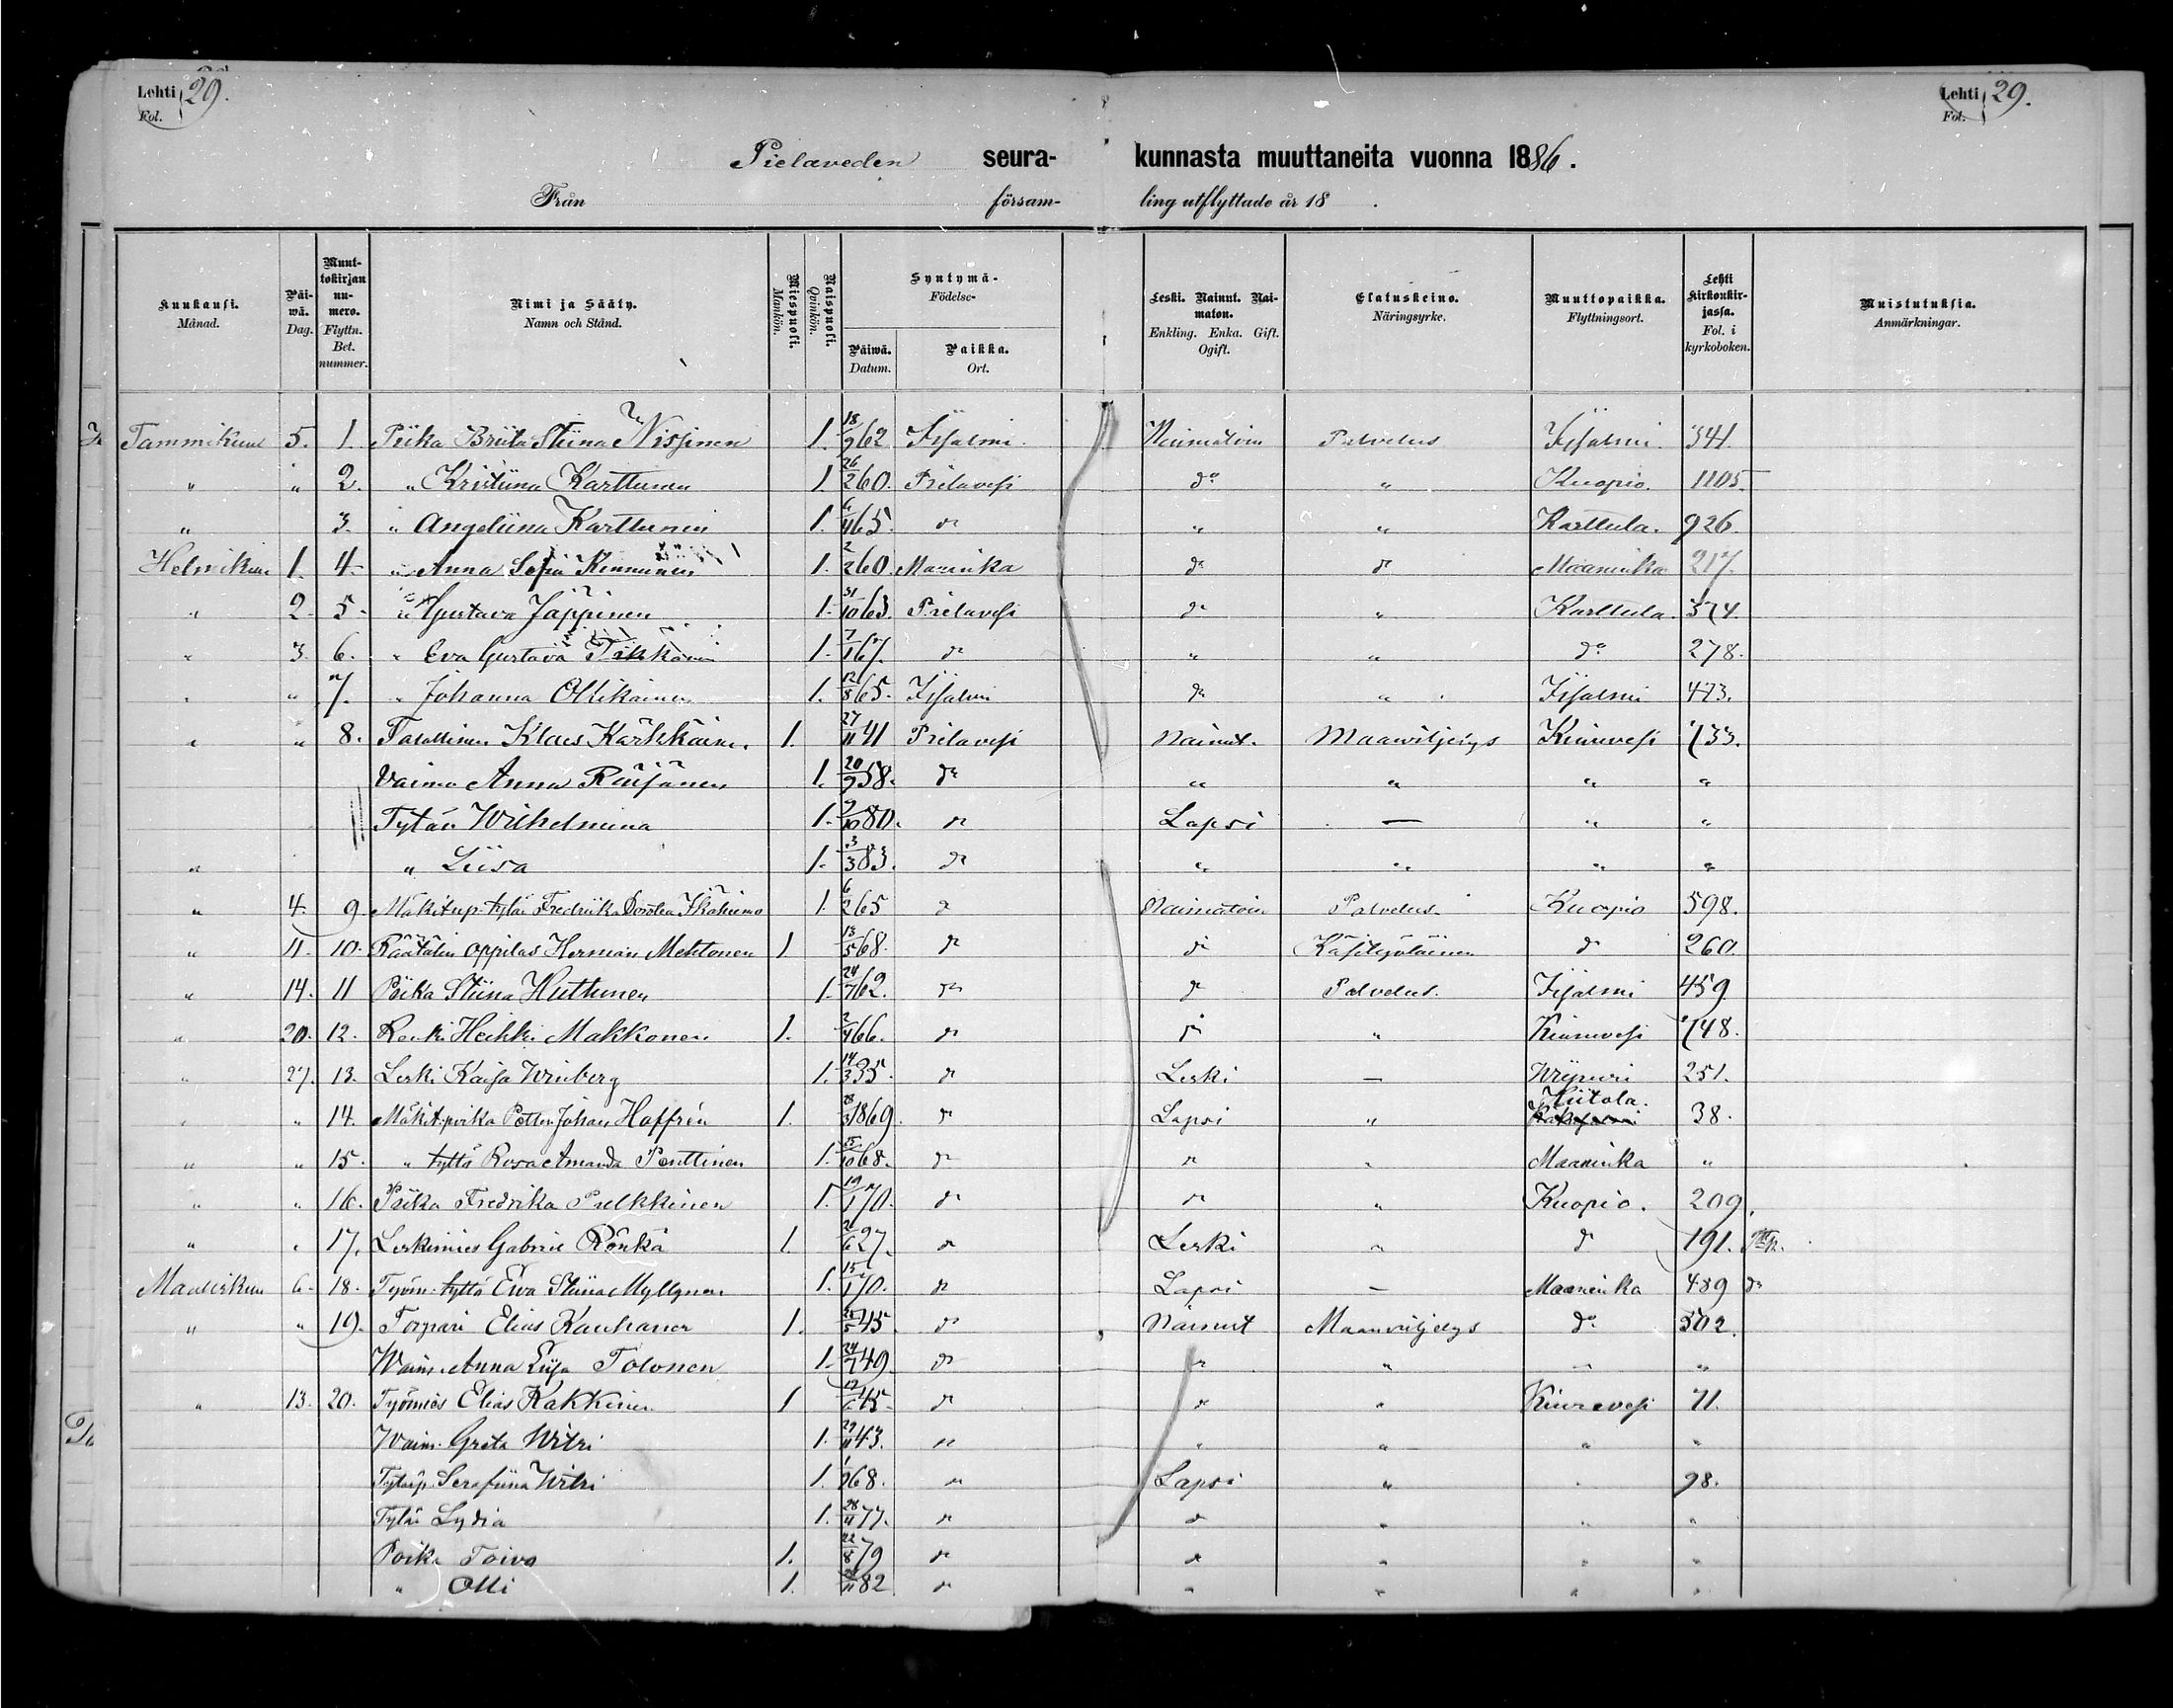 Lehti 29. Lehti 29.
Fol. Fol.
Pielaveden seura- kunnasta muuttaneita vuonna 1886.
Från försam- ling utflyttade år 18 .
Kuukausi. Månad. Päi-wä. Dag. Muut-tokirjan nu-mero. Flyttn. Bet. nummer. Nimi ja Sääty. Namn och Stånd. Miespuoli. Mankön. Naispuoli. Qvinkön. Syntymä- Födelse- Päiwä. Datum. Paikka. Ort. Leski. Nainut. Nai-maton. Enkling. Enka. Gift. Ogift. Elatuskeino. Näringsyrke. Muuttopaikka. Flyttningsort. Lehti kirkonkir-jassa. Fol. i kyrkoboken. Muistutuksia. Anmärkningar.
Tammikuu 5. 1. Piika Briita Stiina Nissinen 1. 18/9 62 Iisalmi. Naimatoin Palvelus Iisalmi. 341.
" " 2. " Kristiina Karttunen 1. 26/2 60. Pielavesi do " Kuopio. 1105.
" 3. " Angeliina Karttunen 1. 6/11 65. do " " Karttula. 926.
Helmikuu 1. 4. " Anna Sofia Kinnunen 1. 2/2 60. Maaninka do do Maaninka 217.
" 2. 5. " Gustava Jäppinen 1. 31/10 63. Pielavesi do " Karttula. 374.
" 3. 6. " Eva Gustava Tikkanen 1. 7/1 67. do " " do 278.
" " 7. " Johanna Ollikainen 1. 12/8 65. Iisalmi do " Iisalmi 473.
" " 8. Talollinen Klaus Kärkkäinen 1. 27/11 41 Pielavesi Nainut. Maanviljelys Kiuruvesi 733.
Vaimo Anna Räisänen 1. 20/9 58. do " " " "
Tytär Wilhelmina 1. 9/10 80. do Lapsi — " "
" " Liisa 1. 3/3 83. do " " " "
" 4. 9. Mäkitup. tytär Fredriika Dorotea Ikäheimo 1. 6/2 65 do Naimatoin Palvelus. Kuopio 598.
" 11. 10. Räätälin oppilas Herman Mehtonen 1 13/5 68. do do Käsityöläinen do 260.
" 14. 11 Piika Stiina Huttunen 1. 24/7 62. do do Palvelus. Iisalmi 459
" 20. 12. Renki Heikki Makkonen 1. 2/4 66. do do " Kiuruvesi 748.
" 27. 13. Leski Kaisa Winberg 1. 14/3 35. do Leski — Wiipuri 251.
" " 14. Mäkit. poika Petter Johan Hoffrén 1. 28/3 1869. do Lapsi " Hiitola. 38.
" " 15. " tyttö Rosa Amanda Penttinen 1. 25/10 68. do do " Maaninka "
" " 16. Piika Fredrika Pulkkinen 1. 19/1 70. do do " Kuopio. 209.
" " 17. Leskimies Gabriel Rönkä 1. 2/6 27. do Leski " do 191.
Maaliskuu 6. 18. Työm. tyttö Eva Stiina Myllynen 1. 15/1 70. do Lapsi — Maaninka 489 do
" " 19. Torpari Elias Kauhanen 1. 25/5 45. do Nainut Maanviljelys do 502.
Waim. Anna Liisa Tolonen 1. 24/7 49. do do " " "
" 13. 20. Työmies Elias Kakkinen 1 12/6 45. do do " Kiuruvesi 71.
Waim. Greta Witri 1. 29/11 43. do " " " "
Tytärp. Serafiina Witri 1. 1/9 68. do Lapsi " " 98.
Tytär Lydia 1. 28/11 77. do do " " "
Poika Toivo 1. 22/8 79 do do " " "
" Olli 1. 82 do " " " "